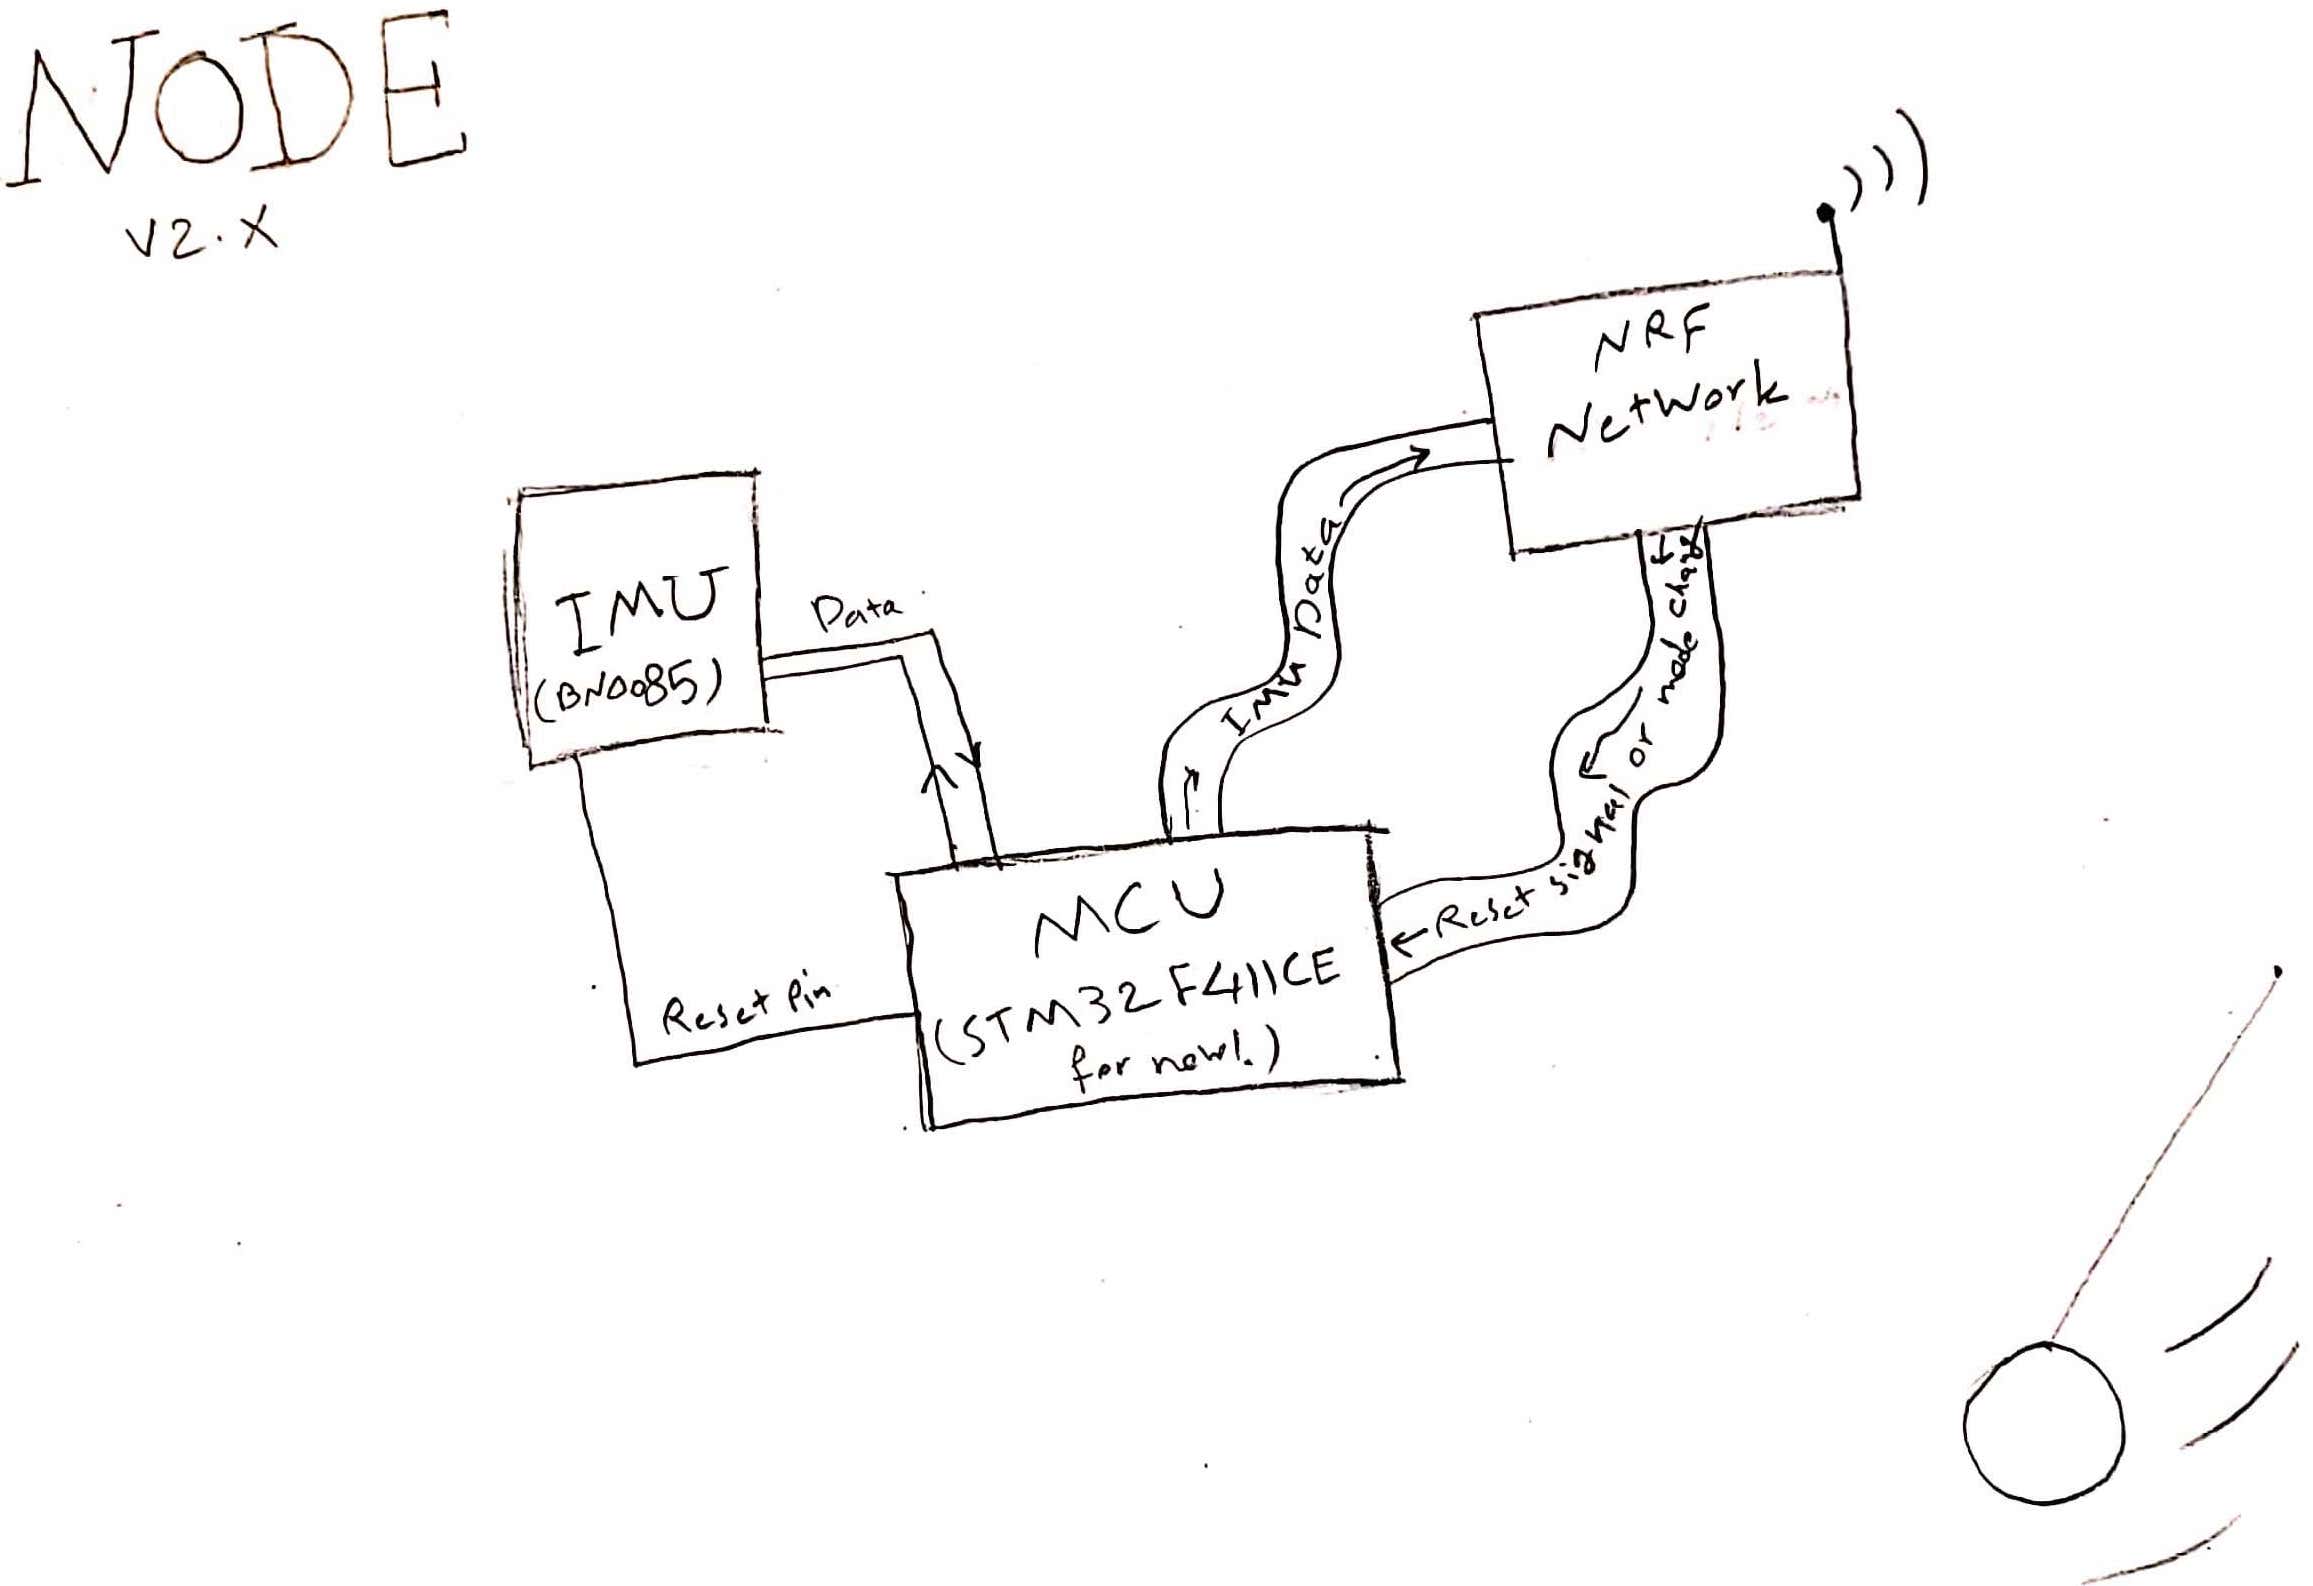 NODE
v2.X
NRF
Network
IMU
(BNO085)
Data
IMU Data
Reset signal or mode chang
MCU
(STM32F411CE
for now!.)
Reset Pin